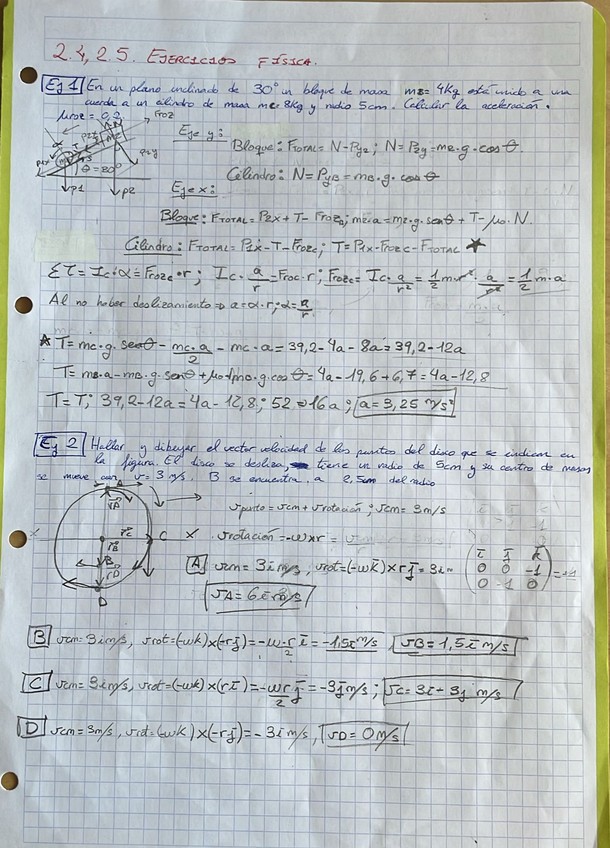 2.4, 2.5. EJERCICIOS FÍSICA.
Ej 1 En un plano inclinado de 30° un bloque de masa mB= 4Kg está unido a una
cuerda a un cilindro de masa mc= 8Kg y radio 5cm. Calcular la aceleración.
μroz = 0,2
Froz
θ = 30°
P1
P2
P2y
Eje y:
Bloque: FTOTAL = N - Py2; N = P2y = mB·g·cosθ
Cilindro: N = PyB = mB·g·cosθ
Eje x:
Bloque: FTOTAL = P2x + T - FrozB; m2·a = m2·g·senθ + T - μ·N.
Cilindro: FTOTAL = P1x - T - Frozc; T = P1x - Frozc - FTOTAL ★
Στ = Ic·α = Frozc·r; Ic·a/r = Froc·r; Frozc = Ic·a/r² = 1/2 m·r²·a/r² = 1/2 m·a
Al no haber deslizamiento ⇒ a = α·r; α = a/r
★ T = mc·g·senθ - mc·a/2 - mc·a = 39,2 - 4a - 8a = 39,2 - 12a
T = mB·a - mB·g·senθ + μ·mB·g·cosθ = 4a - 19,6 + 6,7 = 4a - 12,8
T = T; 39,2 - 12a = 4a - 12,8; 52 = 16a; a = 3,25 m/s²
Ej 2 Hallar y dibujar el vector velocidad de los puntos del disco que se indican en
la figura. El disco se desliza, tiene un radio de 5cm y su centro de masas
se mueve con v = 3 m/s. B se encuentra a 2,5cm del radio
rA
rC
rB
B
rD
C
X
D
vpunto = vcm + vrotación; vcm = 3m/s
vrotación = -w×r =
A vcm = 3i m/s, vrot = (-wk)×rj = 3i = (i j k
0 0 -1
0 -1 0)
vA = 6i m/s
B vcm = 3i m/s, vrot = (-wk)×(-rj) = -w·r/2 i = -1,5i m/s, vB = 1,5i m/s
C vcm = 3i m/s, vrot = (-wk)×(ri) = -wr/2 j = -3j m/s; vC = 3i - 3j m/s
D vcm = 3m/s, vrot = (-wk)×(-rj) = -3i m/s, vD = 0m/s